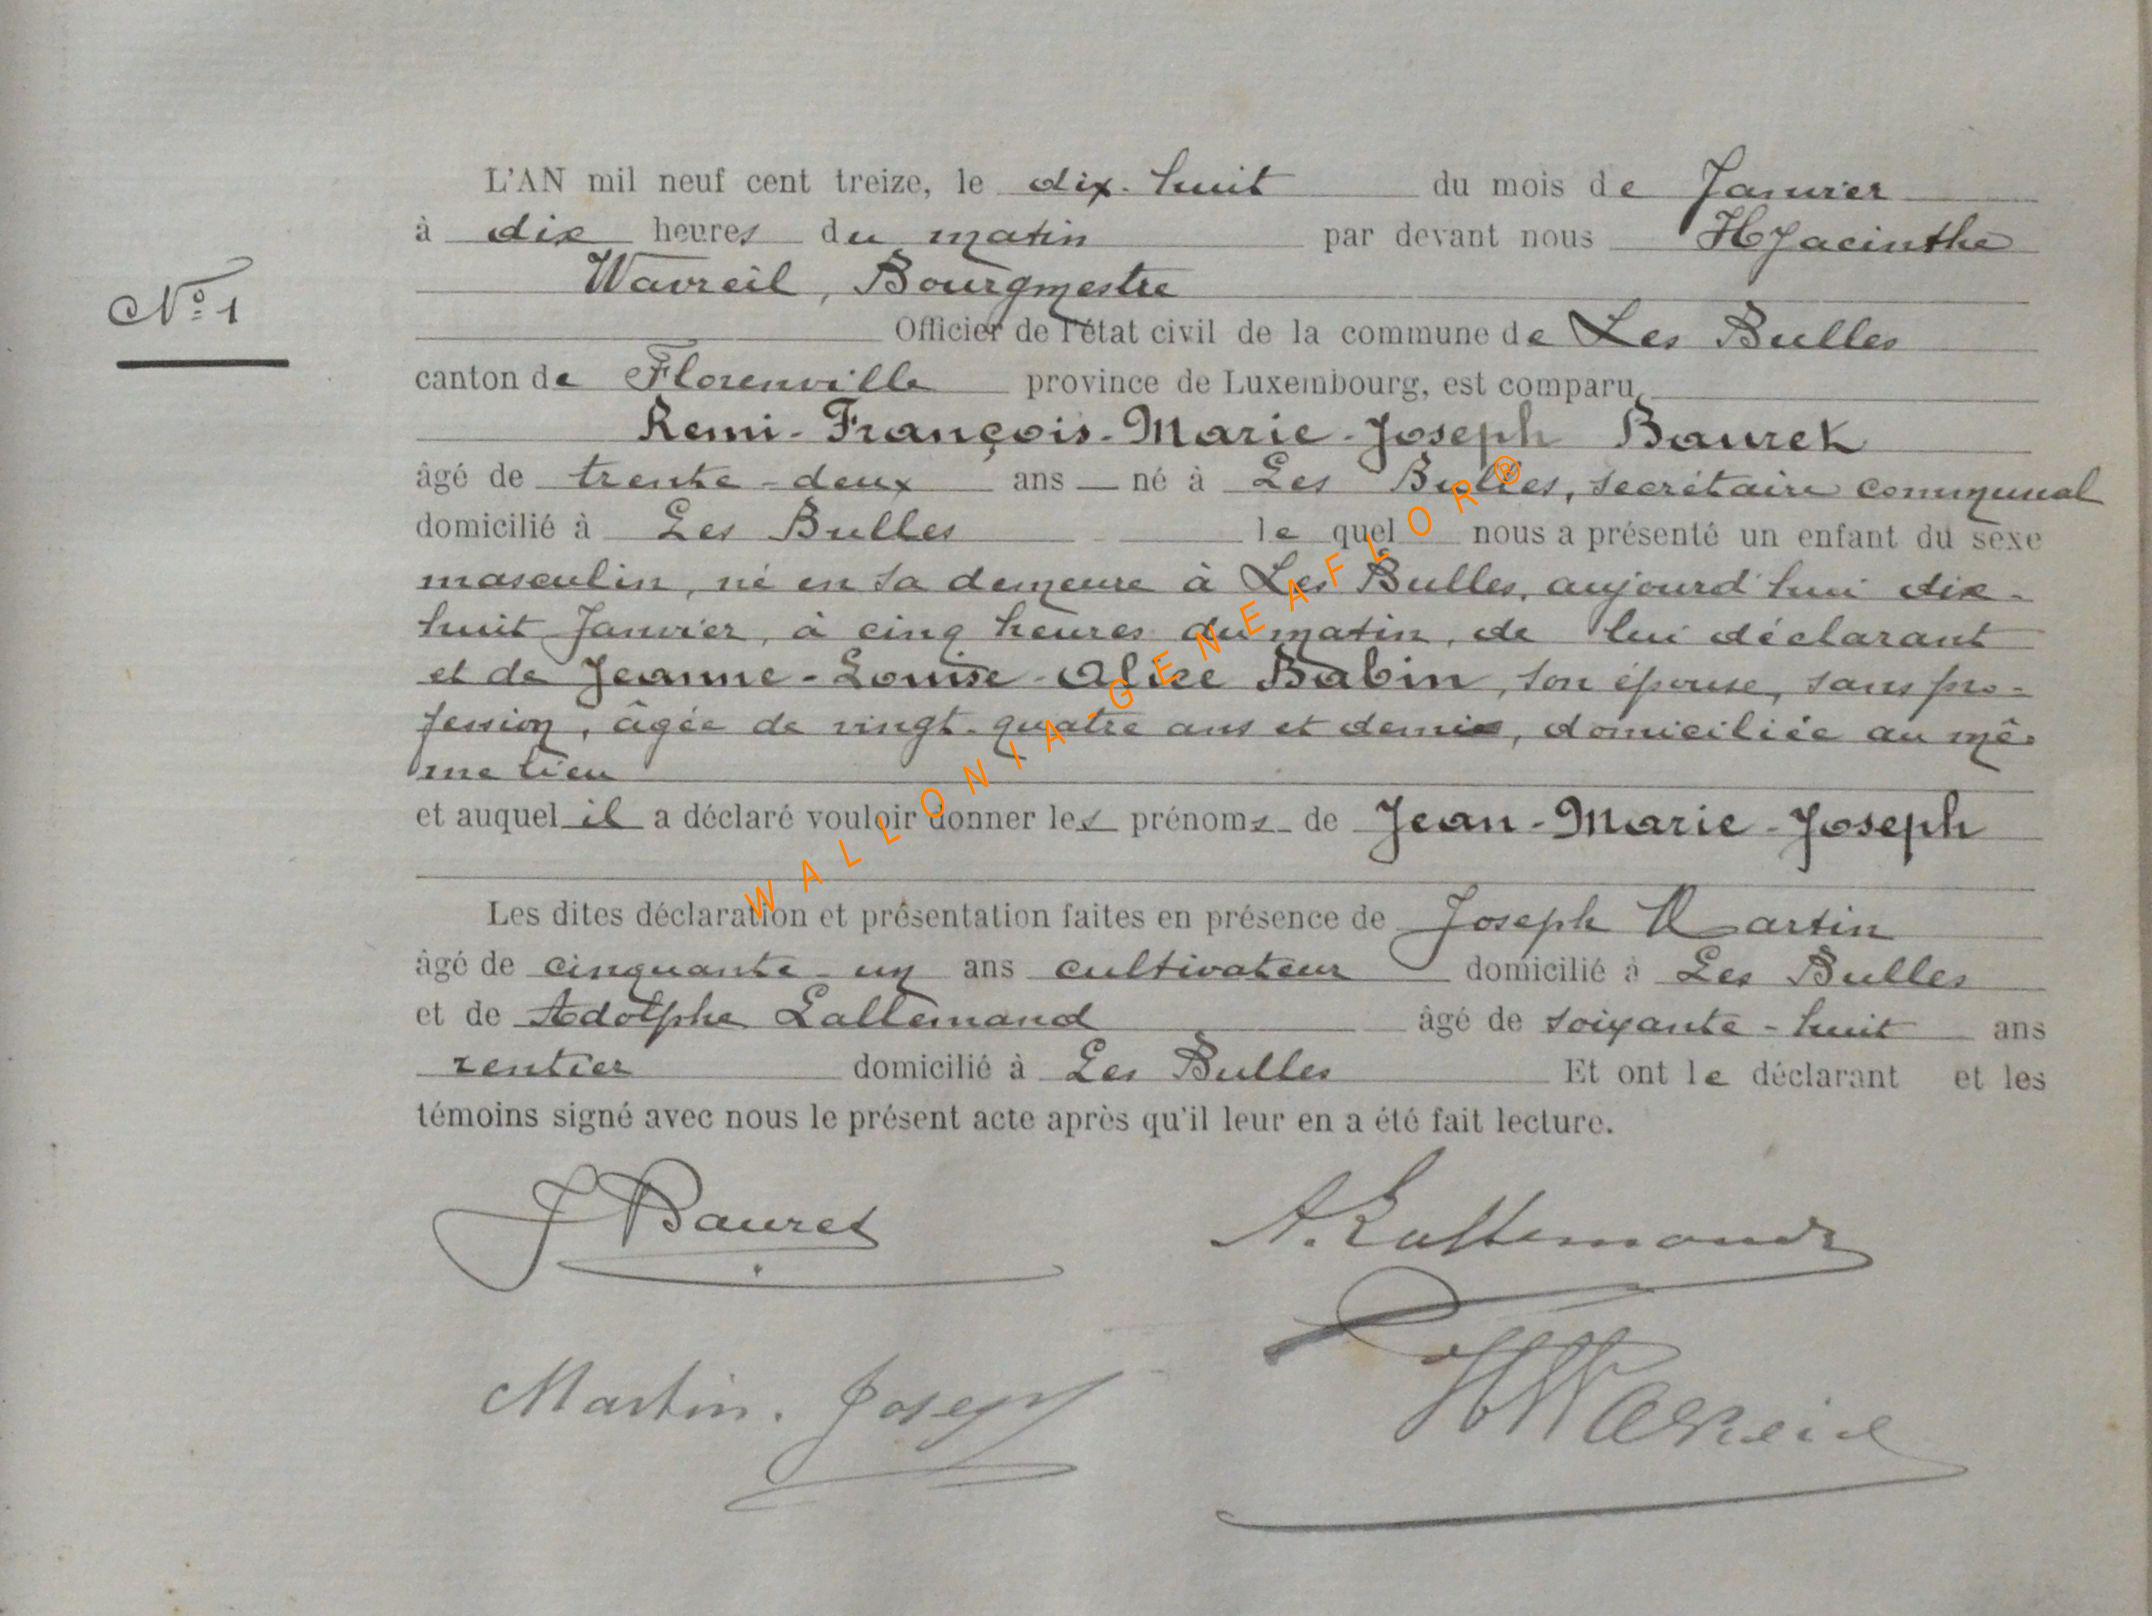 L'AN mil neuf cent treize, le dix-huit du mois de Janvier
à dix heures du matin par devant nous Hyacinthe
N° 1
Wavreil, Bourgmestre
Officier de l'état civil de la commune de Les Bulles
canton de Florenville province de Luxembourg, est comparu
Remi-François-Marie-Joseph Bauret
âgé de trente-deux ans né à Les Bulles, secrétaire communal
domicilié à Les Bulles le quel nous a présenté un enfant du sexe
masculin, né en sa demeure à Les Bulles, aujourd'hui dix-
huit Janvier, à cinq heures du matin, de lui déclarant
et de Jeanne-Louise-Alice Babin, son épouse, sans pro-
fession, âgée de vingt-quatre ans et demi, domiciliée au mê-
me lieu
et auquel il a déclaré vouloir donner les prénoms de Jean-Marie-Joseph
Les dites déclaration et présentation faites en présence de Joseph Martin
âgé de cinquante-un ans cultivateur domicilié à Les Bulles
et de Adolphe Lallemand âgé de soixante-huit ans
rentier domicilié à Les Bulles Et ont le déclarant et les
témoins signé avec nous le présent acte après qu'il leur en a été fait lecture.
J Bauret
A. Lallemand
Martin. Joseph
H Wavreil
WALLONIA-GENEAFLOR®